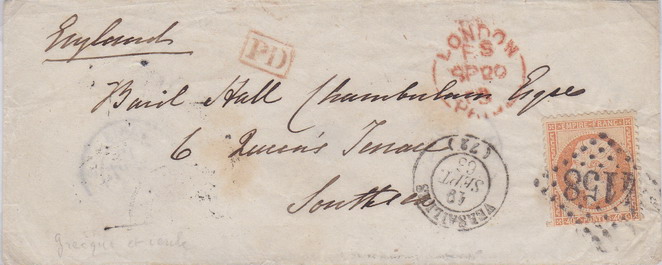 England
PD
LONDON
FS
SP 20
PAID
Basil Hall Chamberlain Esqre
6 Queen's Terrace
Southsea
VERSAILLES
19
SEPT.
(72)
EMPIRE FRANC
4158